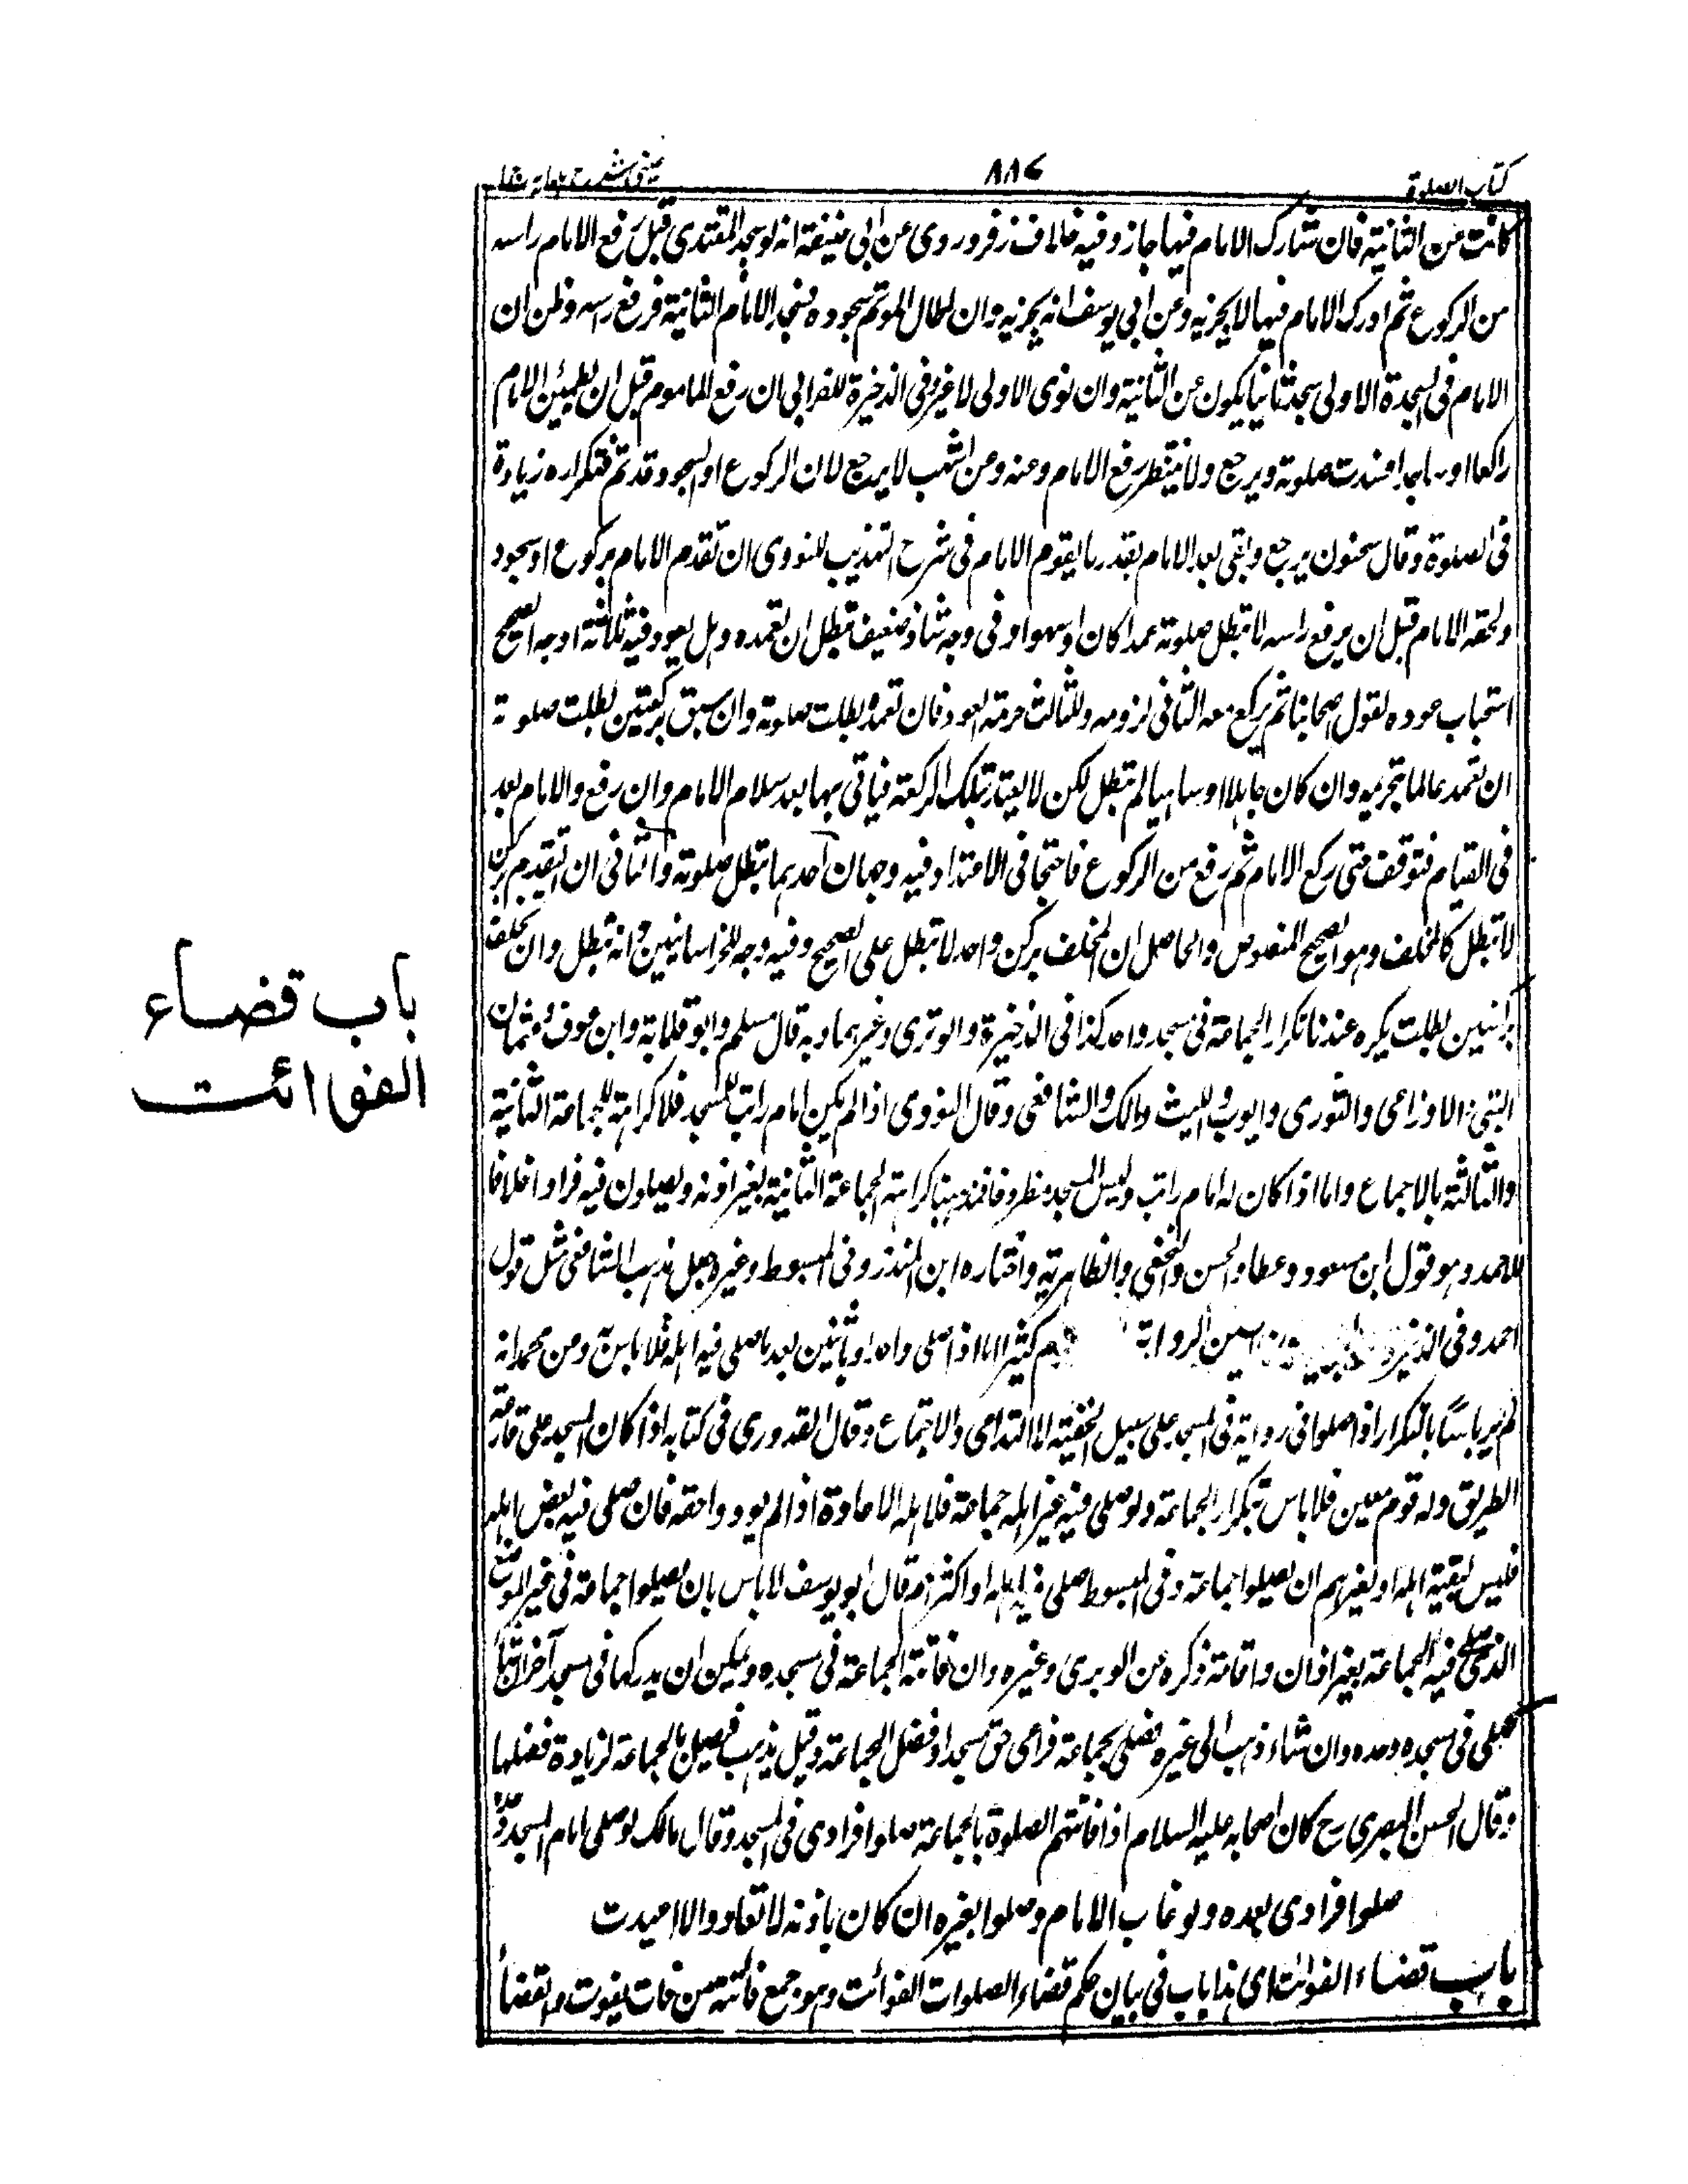 كتاب الصلوة
٨٨٦
عينى شرح هدايه
كانت عن الثانية فان شارك الامام فيها جاز وفيه خلاف زفر وروى عن ابى حنيفة انه لو سجد المقتدى قبل رفع الامام راسه
من الركوع ثم ادرك الامام فيها لا يجزيه وعن ابى يوسف انه يجزيه وان اطال الموتم سجوده فسجد الامام الثانية فرفع راسه وظن ان
الامام فى السجدة الاولى سجد ثانيا يكون عن الثانية وان نوى الاولى لا غير وفى الذخيرة للقرافى ان رفع الماموم قبل ان يطمئن الامام
راكعا او ساجدا فسدت صلوته ويرجع ولا ينتظر رفع الامام وعنه وعن اشهب لا يرجع لان الركوع او السجود قد تم فتكراره زيادة
فى الصلوة وقال سحنون يرجع ويبقى بعد الامام بقدر ما يقوم الامام فى شرح التهذيب للنووى ان تقدم الامام بركوع او سجود
ولحقه الامام قبل ان يرفع راسه لا تبطل صلوته عمدا كان او سهوا وفى وجه شاذ ضعيف تبطل ان تعمده وهل يعود فيه ثلاثة اوجه الصحيح
استحباب عوده لقول اصحابنا ثم يركع معه الثانى لزومه والثالث حرمة العود فان تعمد بطلت صلوته وان سبق بركعتين بطلت صلوته
ان تعمد عالما بتحريمه وان كان جاهلا او ساهيا لم تبطل لكن لا يعتد بتلك الركعة فياتى بها بعد سلام الامام وان رفع والامام بعد
فى القيام فتوقف حتى ركع الامام ثم رفع من الركوع فاجتمعا فى الاعتدال وفيه وجهان احدهما تبطل صلوته والثانى ان التقدم بركن
لا تبطل كالتخلف وهو الصحيح المنصوص والحاصل ان التخلف بركن واحد لا تبطل على الصحيح وفيه وجه للخراسانيين انه تبطل وان تخلف
بركنين بطلت يكره عندنا تكرار الجماعة فى مسجد واحد كذا فى الذخيرة والوترى وغيرهما وبه قال مسلم وابو قلابة وابن عون وعثمان
البتى والاوزاعى والثورى وايوب والليث ومالك والشافعى وقال النووى اذا لم يكن امام راتب للمسجد فلا كراهة للجماعة الثانية
والثالثة بالاجماع واما اذا كان له امام راتب وليس المسجد مطروقا فمذهبنا كراهة الجماعة الثانية بغير اذنه ويصلون فيه فرادا خلافا
لاحمد وهو قول ابن مسعود وعطا والحسن والنخعى والظاهرية واختاره ابن المنذر وفى المبسوط وغيره جعل مذهب الشافعى مثل قول
احمد وفى الذخيرة الرواية كثيرا اما اذا صلى واحد او باثنين بعد ما صلى فيه اهله فلا باس وعن محمد انه
لم ير باسا بالتكرار اذا صلوا فى زاوية فى المسجد على سبيل الخفية الا التداعى والاجتماع وقال القدورى فى كتابه اذا كان المسجد على قارعة
الطريق وله قوم معين فلا باس بتكرار الجماعة ولو صلى فيه غير اهله جماعة فلاهله الاعادة اذا لم يودوا حقه فان صلى فيه بعض اهله
فليس لبقية اهله او لغيرهم ان يصلوا جماعة وفى المبسوط صلى فيه اهله او اكثرهم قال ابو يوسف لا باس بان يصلوا جماعة فى غير الموضع
الذى صلى فيه الجماعة بغير اذان واقامة ذكره عن الوبرى وغيره وان فاتته الجماعة فى مسجده ويمكن ان يدركها فى مسجد آخر ان شاء
يصلى فى مسجده وحده وان شاء ذهب الى غيره فصلى بجماعة فراعى حق مسجد او فضل الجماعة وقيل يذهب فيصلى بالجماعة لزيادة فضلها
وقال الحسن البصرى رح كان اصحابه عليه السلام اذا فاتتهم الصلوة بالجماعة صلوا فرادى فى المسجد وقال مالك لو صلى امام المسجد وحده
صلوا فرادى بعده ولو غاب الامام وصلوا بغيره ان كان باذنه لا تعاد والا اعيدت
باب قضاء الفوائت اى هذا باب فى بيان حكم قضاء الصلوات الفوائت وهو جمع فائتة من فات يفوت والقضاء
باب قضاء
الفوائت